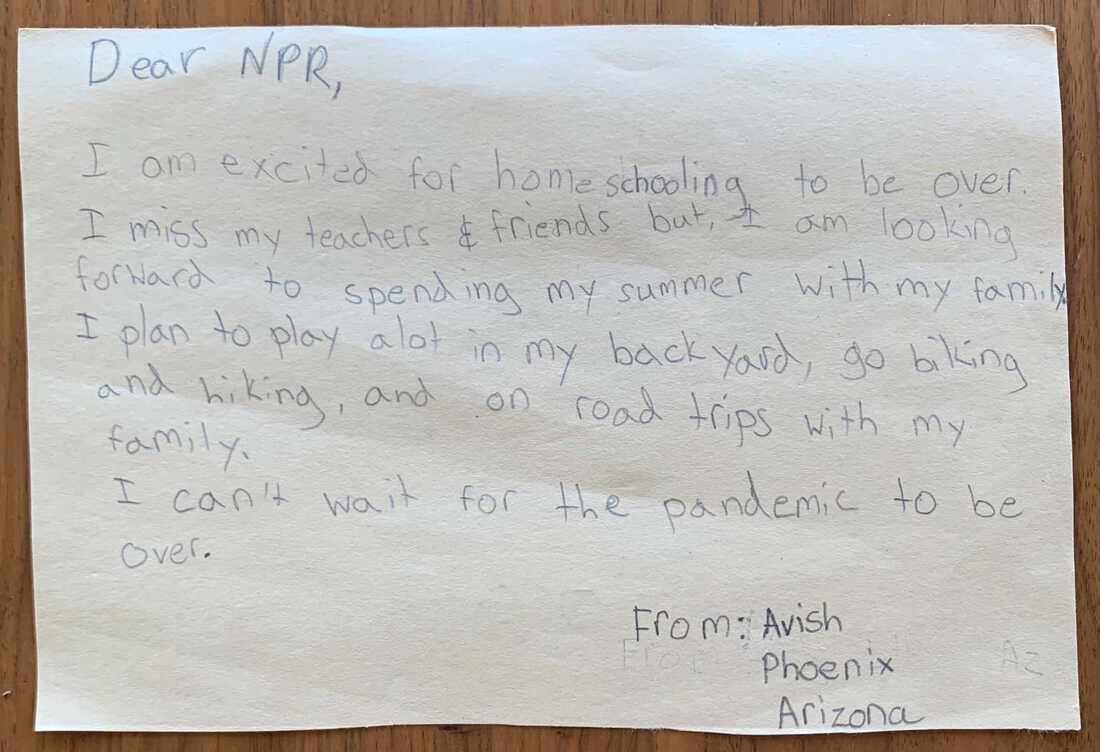 Dear NPR,
I am excited for homeschooling to be over.
I miss my teachers & friends but, I am looking
forward to spending my summer with my family.
I plan to play alot in my backyard, go biking
and hiking, and on road trips with my
family.
I can't wait for the pandemic to be
over.
From: Avish
From Az
Phoenix
Arizona